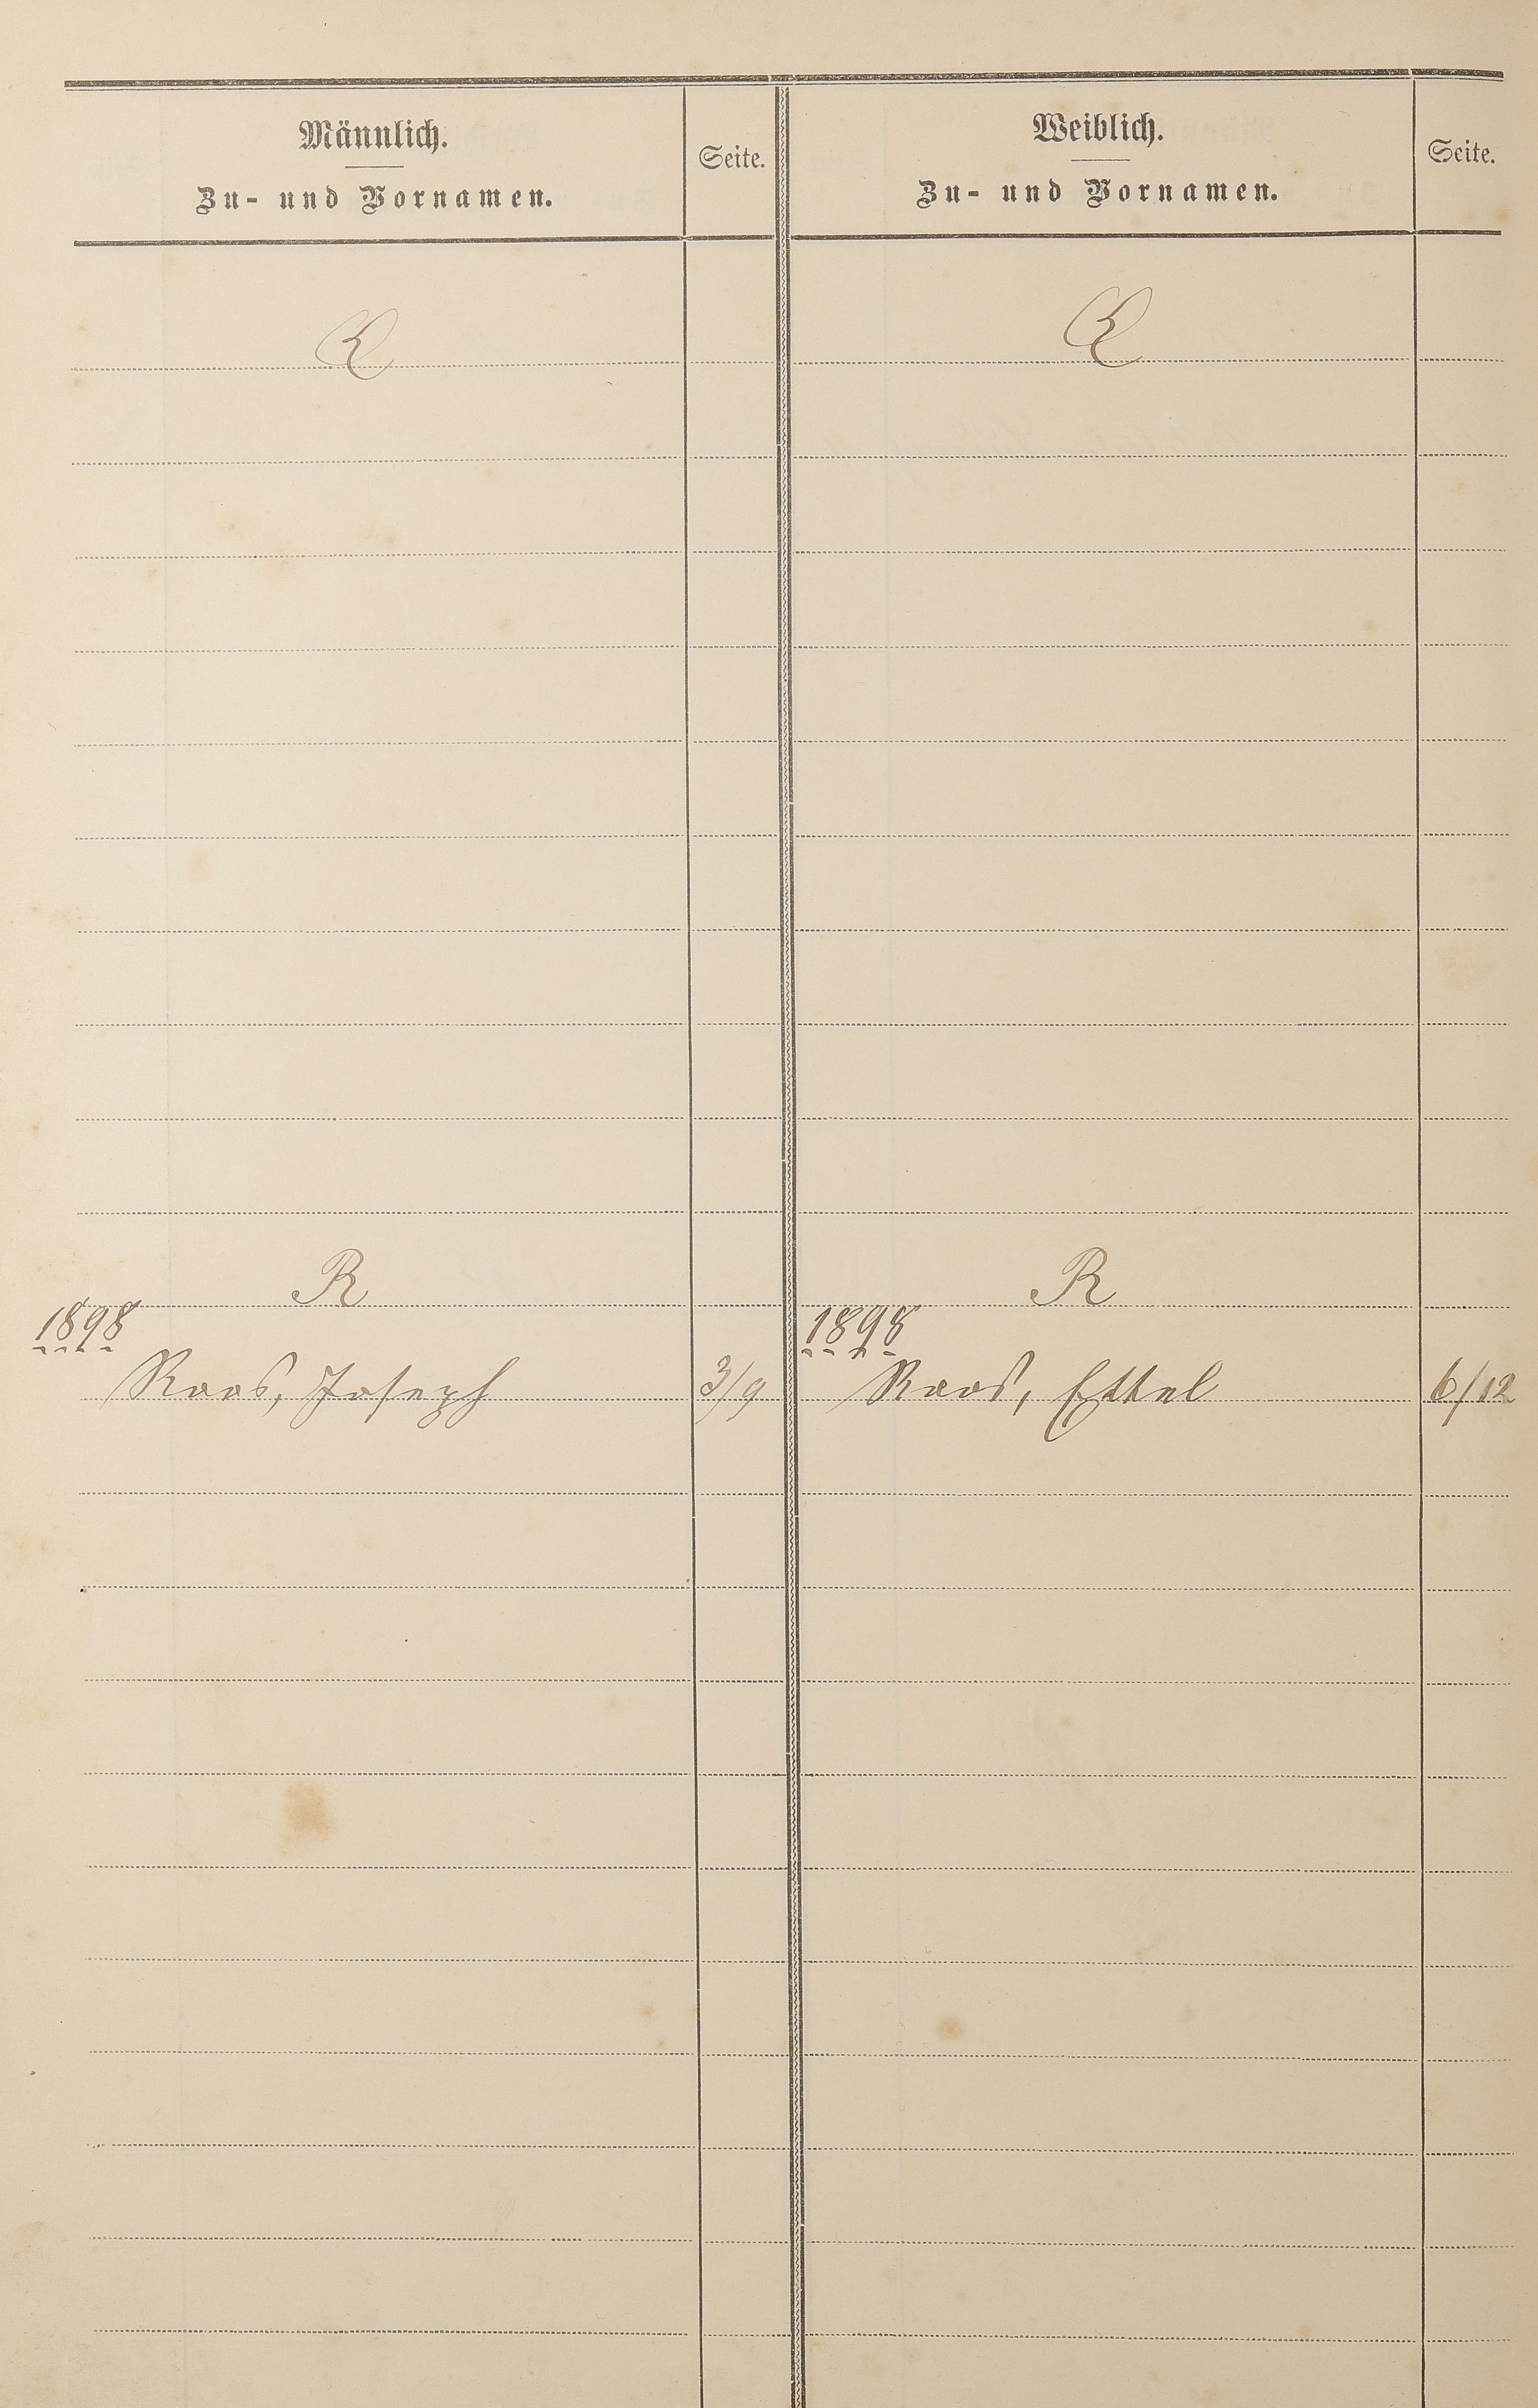 Männlich.
Zu- und Vornamen.
Seite.
Weiblich.
Zu- und Vornamen.
Seite.
Q
Q
R
R
1898
1898
Roos, Joseph 3/9
Roos, Ettel 6/12